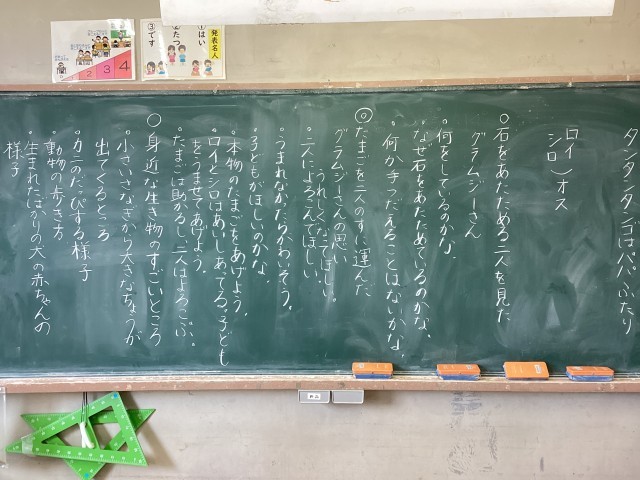 タンタンタンゴはパパふたり
ロイ
シロ
オス
○石をあたためる二人を見た
グラムジーさん
・何をしているのかな、
・なぜ石をあたためているのかな、
・何か手つだえることはないかな、
◎たまごを二人のすに運んだ
グラムジーさんの思い
うれしくなってほしい。
・二人によろこんでほしい
・うまれなかったらかわいそう。
・子どもがほしいのかな、
・本物のたまごをあげよう、
・ロイとシロはあいしあってる、子ども
をうませてあげよう。
・たまごは助かるし、二人はよろこぶ。
○身近な生き物のすごいところ
・小さいさなぎから大きなちょうが
出てくるところ
・カニのだっぴする様子
・動物の歩き方
・生まれたばかりの犬の赤ちゃんの
様子
発表名人
①はい
②たつ
③です
1 2 3 4